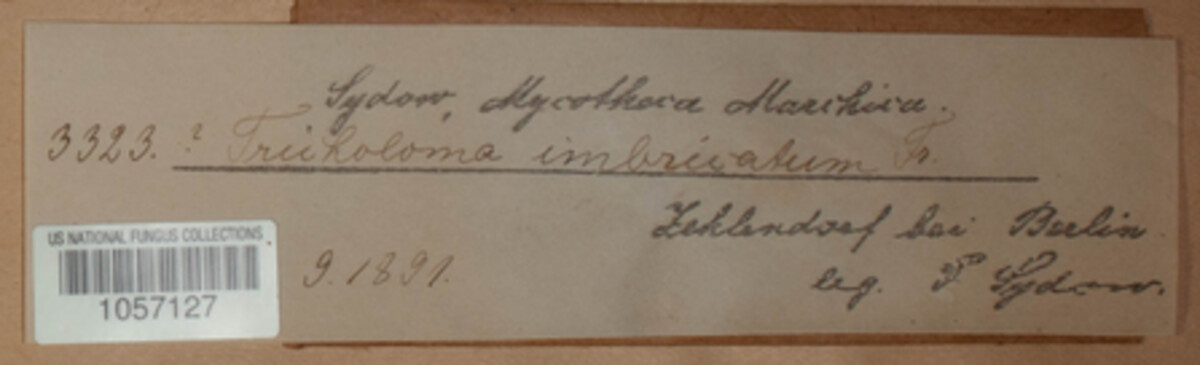 Sydow, Mycotheca Marchica.
3323. ? Tricholoma imbricatum Fr.
Zehlendorf bei Berlin
9. 1891.
leg. P Sydow.
US NATIONAL FUNGUS COLLECTIONS
1057127